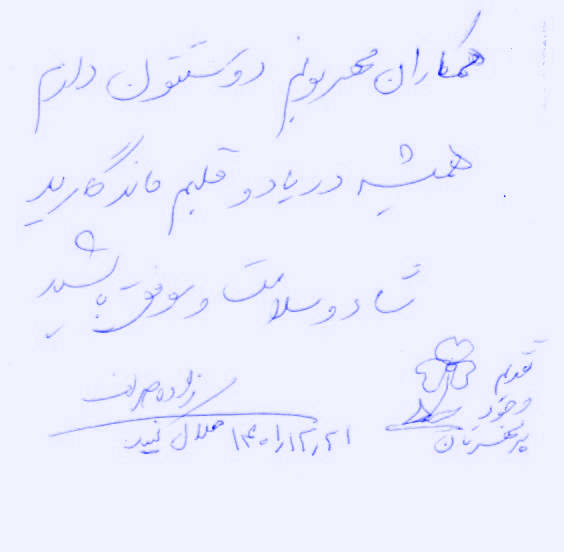 همکاران مهربونم دوستتون دارم
همیشه در یاد و قلبم ماندگارید
شاد و سلامت و موفق باشید
تقدیم
وجود
پر مهرتان
زاده
۱۴۰۱/۱۲/۲۱ حلال کنید